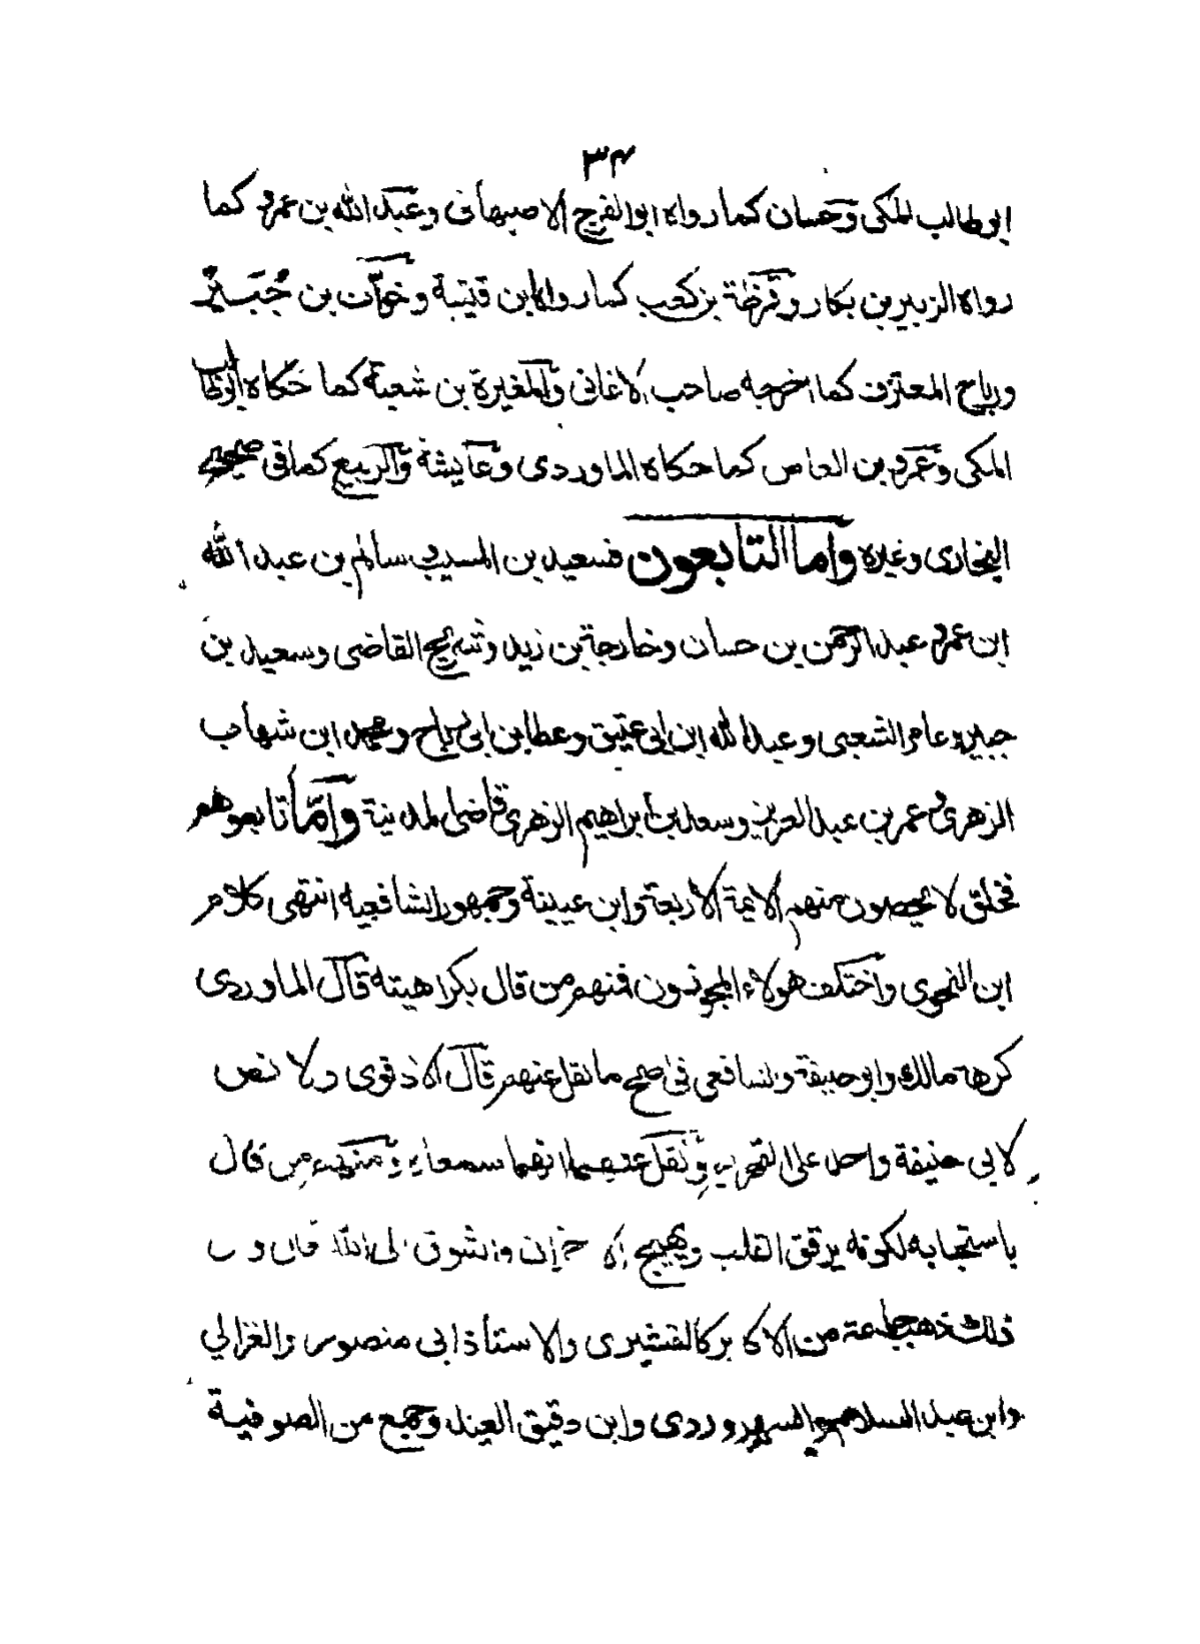 ٣٤
ابوطالب المكى وحسان كما رواه ابوالفرج الاصبهانى وعبد الله بن عمرو كما
رواه الزبير بن بكار وقرظة بن كعب كما رواه ابن قتيبة وخوات بن جُبَيْر
ورباح المعترف كما اخرجه صاحب الاغانى والمغيرة بن شعبة كما حكاه ابوطالب
المكى وعمرو بن العاص كما حكاه الماوردى وعايشة والربيع كما فى صحيح
البخارى وغيره وأما التابعون فسعيد بن المسيب وسالم بن عبد الله
ابن عمرو عبد الرحمن بن حسان وخارجة بن زيد وشريح القاضى وسعيد بن
جبير وعامر الشعبى وعبد الله ابن ابى عتيق وعطا بن ابى رباح ومحمد ابن شهاب
الزهرى وعمر بن عبد العزيز وسعد بن ابراهيم الزهرى قاضى المدينة وأمّا تابعوهم
فخلق لا يحصون منهم الائمة الاربعة وابن عيينة وجمهور الشافعيه انتهى كلام
ابن النحوى واختلف هولاء المجوزون فمنهم من قال بكراهيته قال الماوردى
كرهه مالك وابو حنيفة والشافعى فى اصح ما نقل عنهم قال الاذفوى ولا نص
لابى حنيفة واحمد على التحريم ونقل عنهما انهما سمعاه ومنهم من قال
باستحبابه لكونه يرقق القلب ويهيج الاحزان والشوق الى الله قال و
ذلك ذهب جماعة من الاكابر كالقشيرى والاستأذ ابى منصور والغزالي
وابن عبد السلام والسهروردى وابن دقيق العيد وجميع من الصوفية